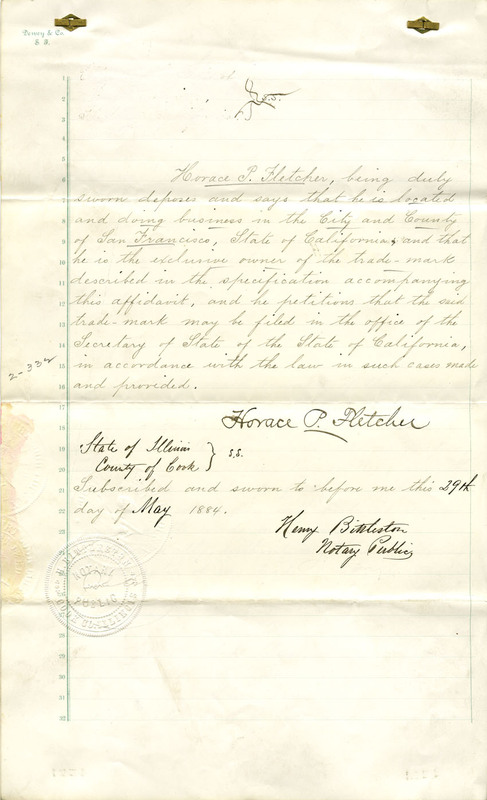 Dewey & Co.
S. F.
1
2
3
4
5
6
7
8
9
10
11
12
13
14
15
16
17
18
19
20
21
22
23
24
25
26
27
28
29
30
31
32
s.s.
Horace P. Fletcher, being duly
sworn deposes and says that he is located
and doing business in the City and County
of San Francisco, State of California; and that
he is the exclusive owner of the trade-mark
described in the specification accompanying
this affidavit, and he petitions that the said
trade-mark may be filed in the office of the
Secretary of State of the State of California,
in accordance with the law in such cases made
and provided.
2-332
Horace P. Fletcher
State of Illinois
County of Cook } s.s.
Subscribed and sworn to before me this 29th
day of May 1884.
Henry Bittleston
Notary Public
NOTARY
PUBLIC